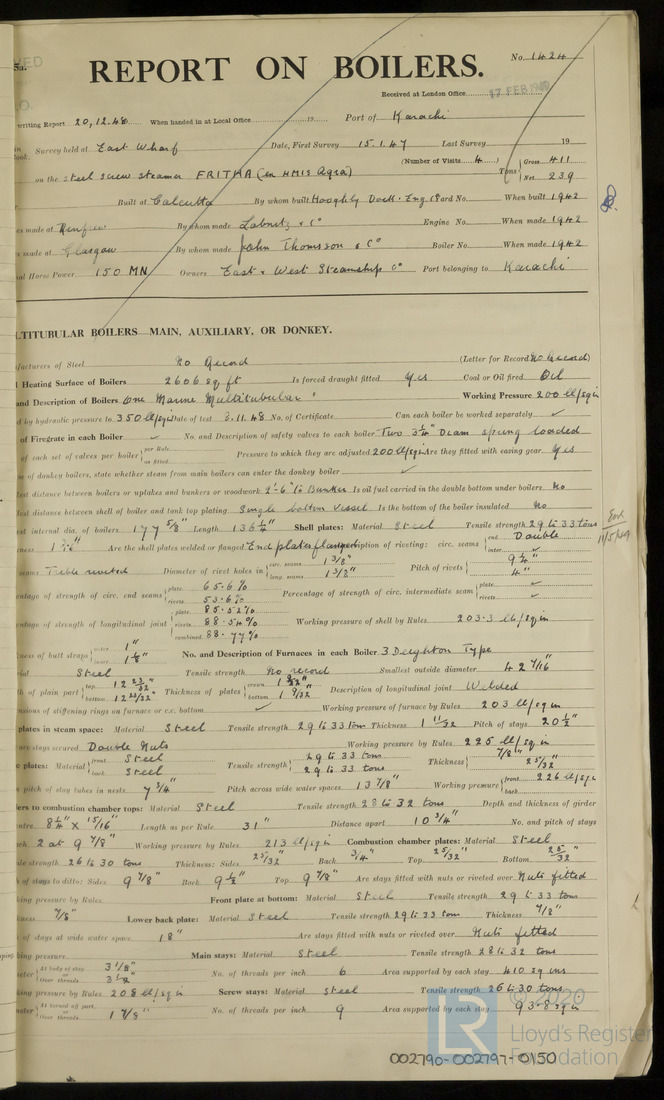 5a.
REPORT ON BOILERS.
No. 1424
Received at London Office 17 FEB 1949
writing Report 20.12.48 When handed in at Local Office 19 Port of Karachi
Survey held at East Wharf Date, First Survey 15.1.47 Last Survey 19
(Number of Visits 4)
on the Steel screw steamer FRITHA (ex HMIS Agra) Tons { Gross 411
Net 239
Built at Calcutta By whom built Hooghly Dock. Eng. Co Yard No. When built 1942
es made at Renfrew By whom made Lobnitz & Co Engine No. When made 1942
s made at Glasgow By whom made John Thomsson & Co Boiler No. When made 1942
al Horse Power 150 MN Owners East & West Steamship Co Port belonging to Karachi
LTITUBULAR BOILERS—MAIN, AUXILIARY, OR DONKEY.
facturers of Steel No Record (Letter for Record No Record)
l Heating Surface of Boilers 2606 sq ft Is forced draught fitted Yes Coal or Oil fired Oil
and Description of Boilers One Marine Multitubular Working Pressure 200 lb/sq in
d by hydraulic pressure to 350 lb/sq in Date of test 3.11.48 No. of Certificate Can each boiler be worked separately ✓
of Firegrate in each Boiler ✓ No. and Description of safety valves to each boiler Two 3¼" Diam spring loaded
of each set of valves per boiler { per Rule as fitted Pressure to which they are adjusted 200 lb/sq in Are they fitted with easing gear Yes
e of donkey boilers, state whether steam from main boilers can enter the donkey boiler ✓
est distance between boilers or uptakes and bunkers or woodwork 2'-6" to Bunker Is oil fuel carried in the double bottom under boilers No
est distance between shell of boiler and tank top plating Single bottom vessel Is the bottom of the boiler insulated No
est internal dia. of boilers 177 5/8" Length 136¼" Shell plates: Material Steel Tensile strength 29 to 33 tons
ness Are the shell plates welded or flanged End plates flanged Description of riveting: circ. seams { end Double
inter ✓
seams Treble riveted Diameter of rivet holes in { circ. seams 1 3/8"
long. seams 1 3/8" Pitch of rivets { 9¼"
4"
entage of strength of circ. end seams { plate 65.6%
rivets 53.6% Percentage of strength of circ. intermediate seam { plate ✓
rivets ✓
entage of strength of longitudinal joint { plate 85.52%
rivets 88.54%
combined 88.77% Working pressure of shell by Rules 203.3 lb/sq in
ness of butt straps { outer 1"
inner 1⅛" No. and Description of Furnaces in each Boiler 3 Deighton Type
rial Steel Tensile strength No record Smallest outside diameter 42 7/16"
th of plain part { top 12 23/32"
bottom 12 23/32" Thickness of plates { crown
bottom Description of longitudinal joint Welded
nsions of stiffening rings on furnace or c.c. bottom ✓ Working pressure of furnace by Rules 203 lb/sq in
plates in steam space: Material Steel Tensile strength 29 to 33 tons Thickness 1 11/32 Pitch of stays 20½"
are stays secured Double Nuts Working pressure by Rules 225 lb/sq in
e plates: Material { front Steel
back Steel Tensile strength { 29 to 33 tons
29 to 33 tons Thickness { 7/8"
25/32"
n pitch of stay tubes in nests 7¾" Pitch across wide water spaces 13 7/8" Working pressure { front 226 lb/sq in
back
ders to combustion chamber tops: Material Steel Tensile strength 28 to 32 tons Depth and thickness of girder
ntre 8¼" x 15/16" Length as per Rule 31" Distance apart 10¾" No. and pitch of stays
ach 2 at 9 7/8" Working pressure by Rules 213 lb/sq in Combustion chamber plates: Material Steel
ile strength 26 to 30 tons Thickness: Sides 25/32" Back ¾" Top 25/32" Bottom 25/32"
h of stays to ditto: Sides 9 7/8" Back 9½" Top 9 7/8" Are stays fitted with nuts or riveted over Nuts fitted
king pressure by Rules Front plate at bottom: Material Steel Tensile strength 29 to 33 tons
kness 7/8" Lower back plate: Material Steel Tensile strength 29 to 33 tons Thickness 7/8"
of stays at wide water space 18" Are stays fitted with nuts or riveted over Nuts fitted
ing pressure Main stays: Material Steel Tensile strength 28 to 32 tons
eter { At body of stay 3⅛"
or
Over threads 3½" No. of threads per inch 6 Area supported by each stay 410 sq ins
king pressure by Rules 208 lb/sq in Screw stays: Material Steel Tensile strength 26 to 30 tons
eter { At turned off part
or
Over threads 1 7/8" No. of threads per inch 9 Area supported by each stay 93.8 sq in
© 2020
LR
Lloyd's Register
Foundation
002790-002797-0150